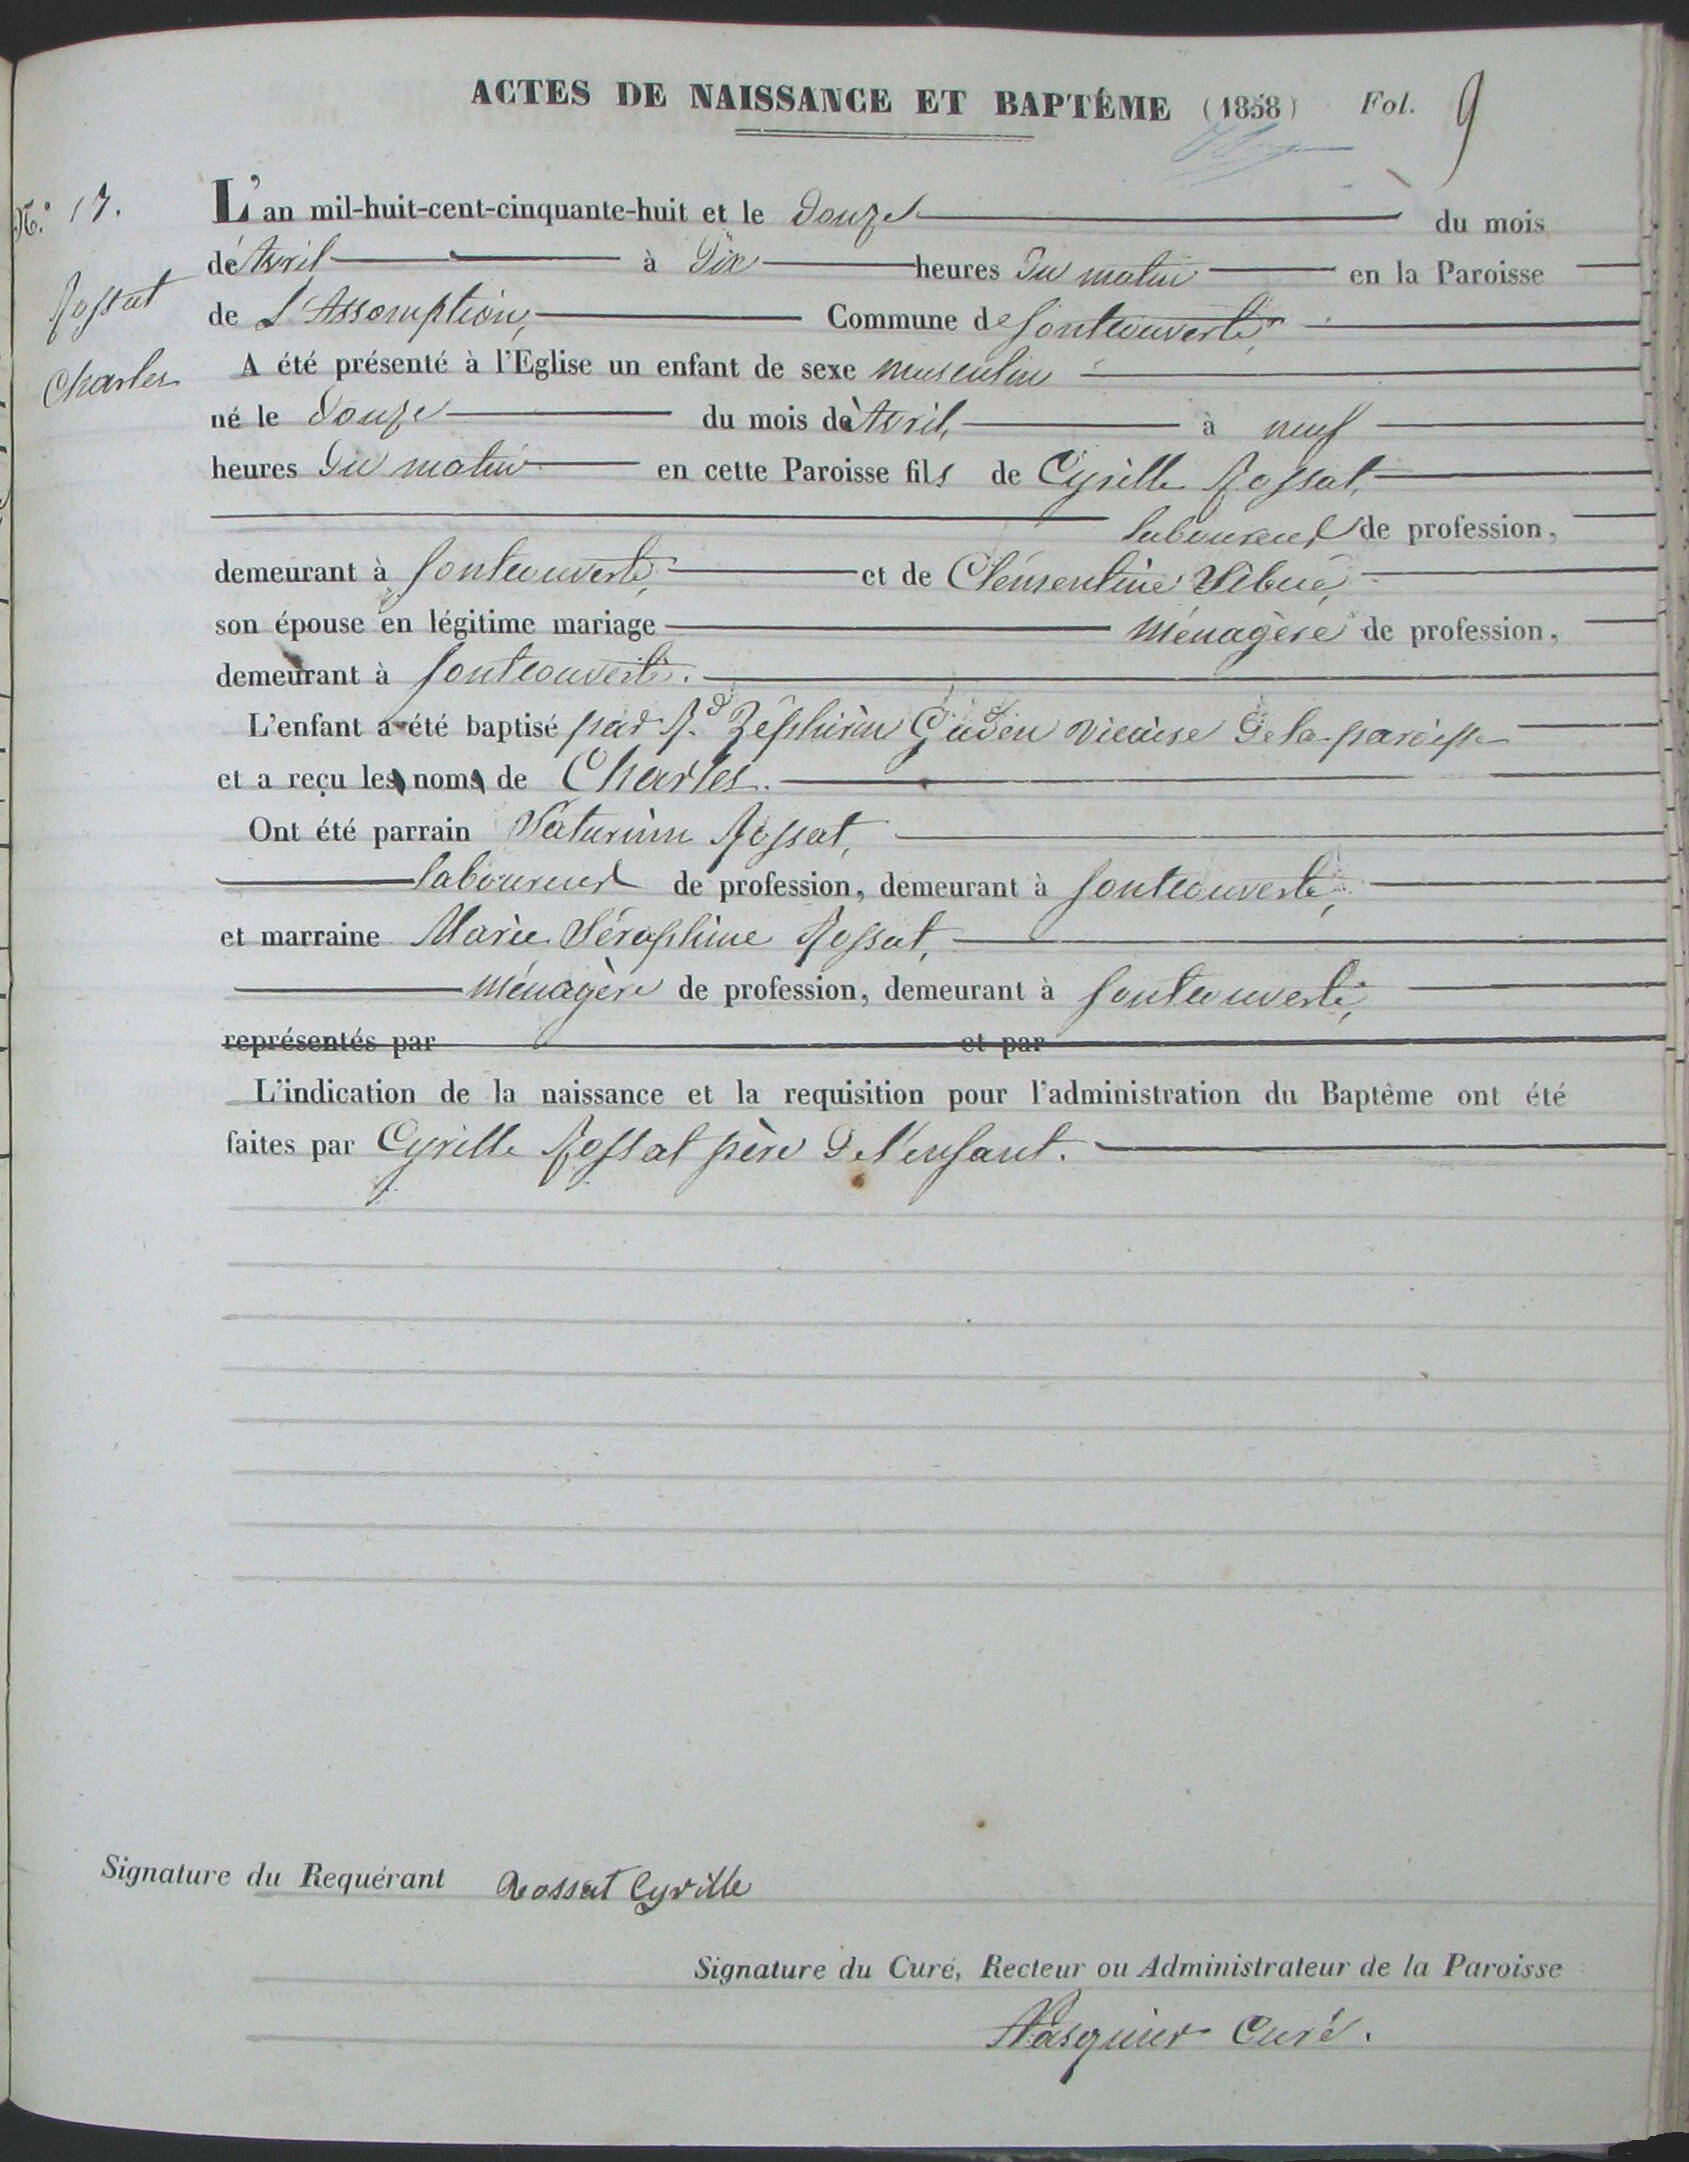 ACTES DE NAISSANCE ET BAPTÊME (1858) Fol. 9
N.º 17.
Rossat
Charles
L'an mil-huit-cent-cinquante-huit et le douze du mois
d'Avril à dix heures du matin en la Paroisse
de L'Assomption, Commune de fontcouverte,
A été présenté à l'Eglise un enfant de sexe masculin
né le douze du mois d'Avril, à neuf
heures du matin en cette Paroisse fils de Cyrille Rossat,
laboureur de profession,
demeurant à fontcouverte, et de Clémentine Sibué,
son épouse en légitime mariage ménagère de profession,
demeurant à fontcouverte.
L'enfant a été baptisé par Rd Zéphirin vicaire de la paroisse
et a reçu le nom de Charles.
Ont été parrain Saturnin Rossat,
laboureur de profession, demeurant à fontcouverte,
et marraine Marie Séraphine Rossat,
ménagère de profession, demeurant à fontcouverte,
représentés par et par
L'indication de la naissance et la requisition pour l'administration du Baptême ont été
faites par Cyrille Rossat père de l'enfant.
Signature du Requérant Rossat Cyrille
Signature du Curé, Recteur ou Administrateur de la Paroisse
Pasquier Curé.